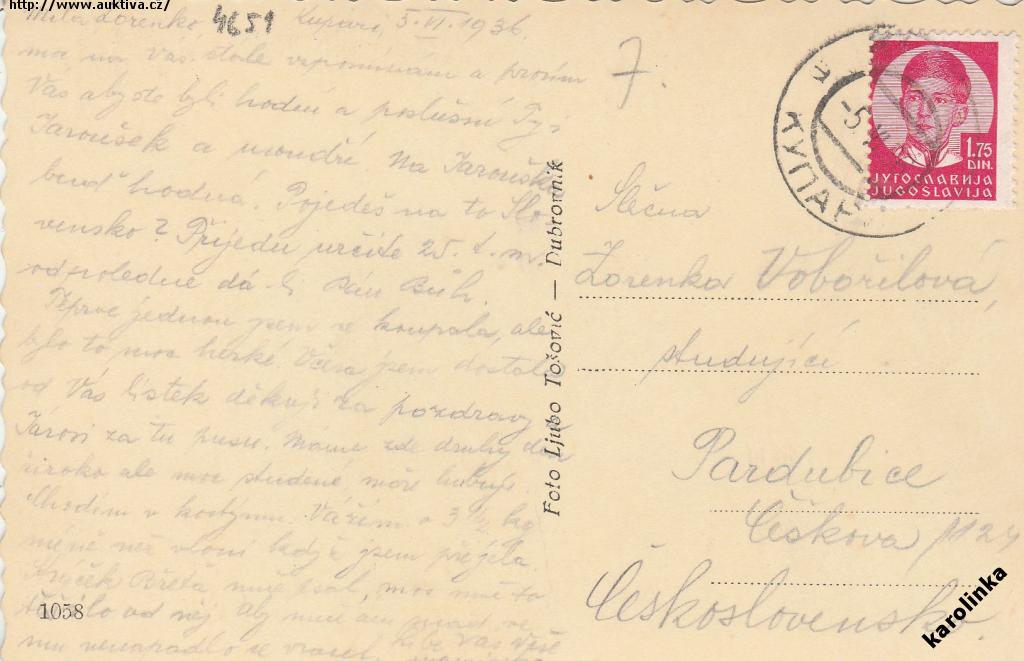 http://www.auktiva.cz/
4651
Milá Zorenko, Kupari, 5.VI.1936.
moc na Vás stále vzpomínám a prosím
Vás aby ste byli hodní a poslušní Ty i
Jaroušek a moudří. Na Jarouška
buď hodná. Pojedeš na to Slo
vensko? Přijedu určitě 25. t. m.
odpoledne dá-li Pán Bůh.
Teprve jednou jsem se koupala, ale
bylo to moc herke. Včera jsem dostala
od Vás lístek děkuji za pozdrav a
Járovi za tu pusu. Máme zde druhý den
široko ale moc studené, moře
Chodím v kostýmu. Vážím o 3 1/2 kg
méně než vloni když jsem přijela
Strýček Břeťa mně psal, moc mně to
těšilo od něj. Aby
mu nenapadlo se vracet. Líbá Vás Vaše
1058
Foto Ljubo Tošović — Dubrovnik
7.
КУПАРИ
1.75
DIN.
ЈУГОСЛАВИЈА
JUGOSLAVIJA
Slečna
Zorenka Vobořilová,
studující
Pardubice
Češkova 1124
Československo
karolinka